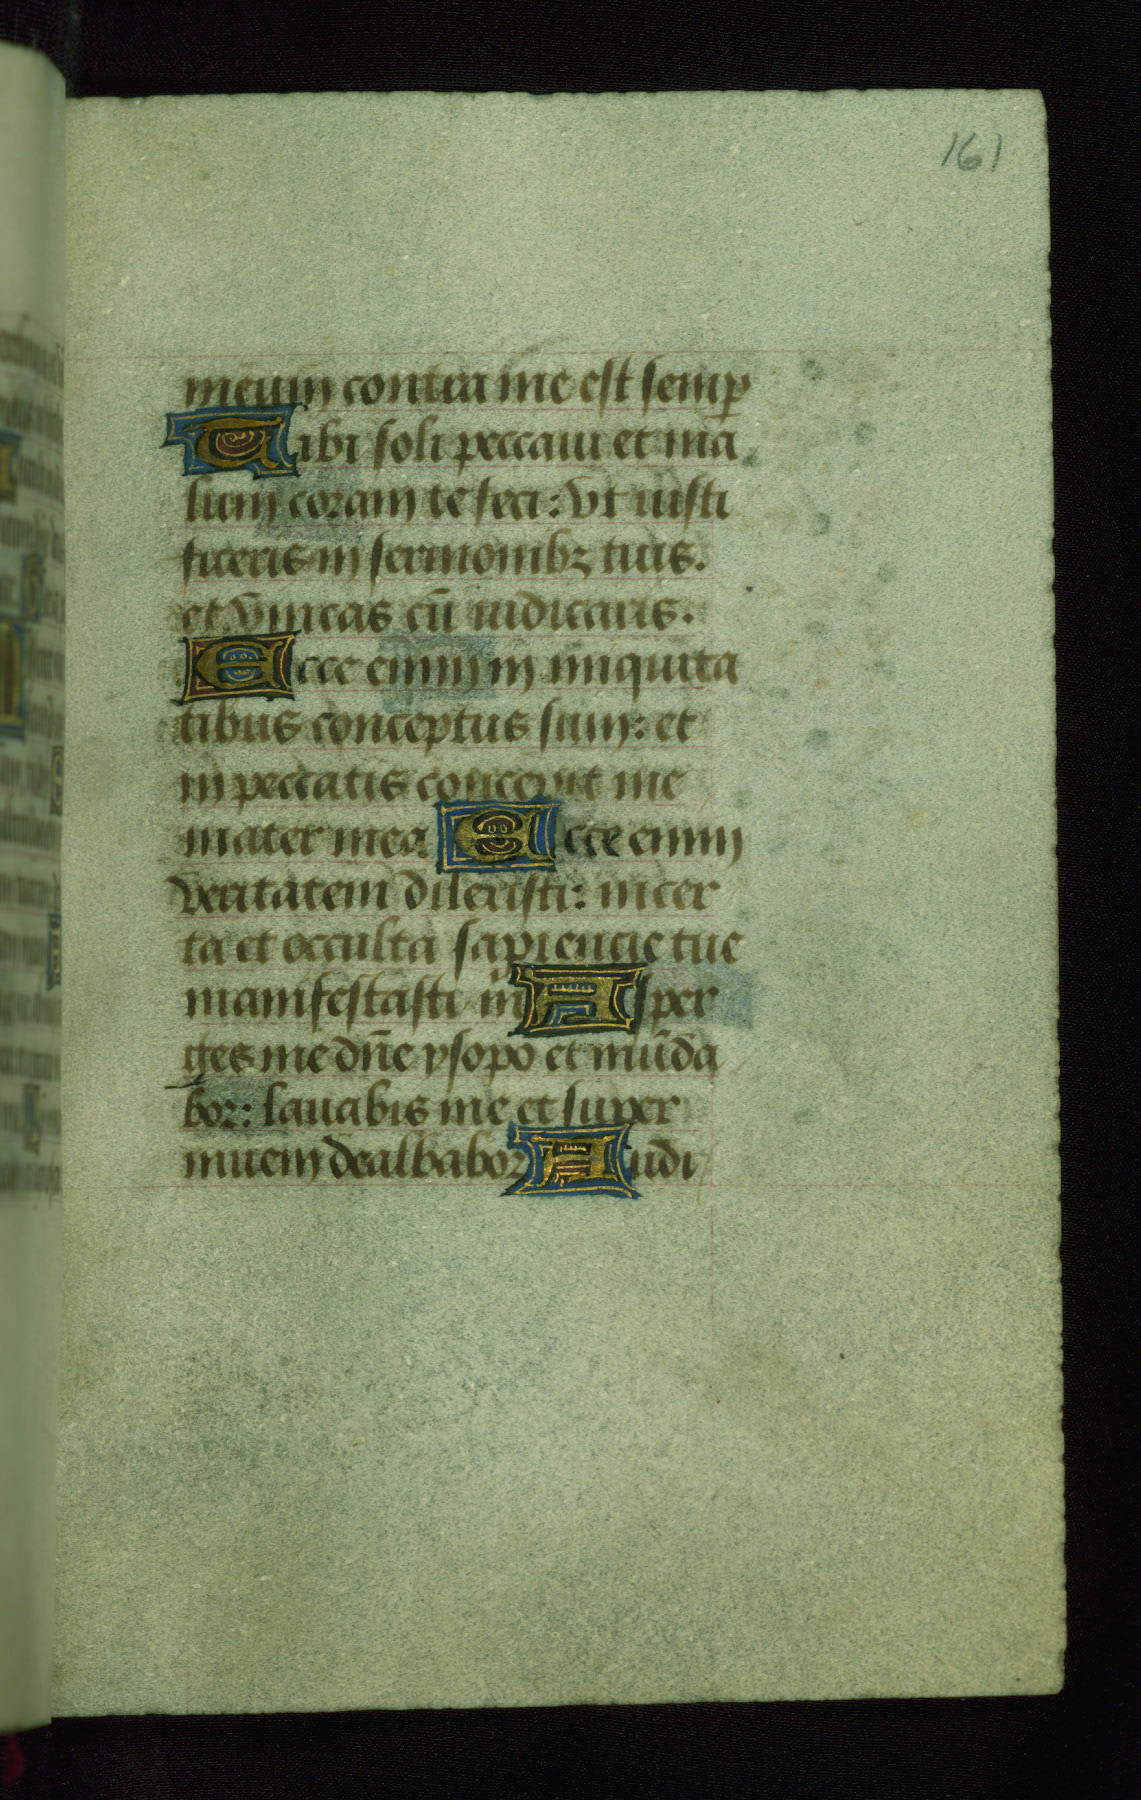 161
meum contra me est semp̄
Tibi soli peccaui et ma
lum coram te feci: vt iusti
ficeris in sermonibꝫ tuis.
et vincas cū iudicaris.
Ecce enim in iniquita
tibus conceptus sum: et
in peccatis concepit me
mater mea Ecce enim
veritatem dilexisti: incer
ta et occulta sapiencie tue
manifestasti m̄ Asper
ges me dn̄e ysopo et mūda
bor: lauabis me et super
niuem dealbabor Audi